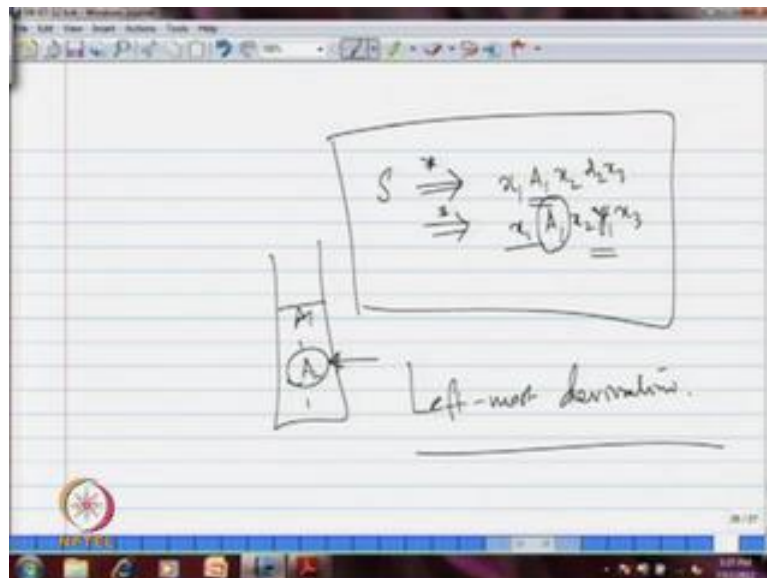 File Edit View Insert Actions Tools Help
S *⇒ x₁ A₁ x₂ A₂ x₃
*⇒ x₁ A₁ x₂ y₁ x₃
A₁
A
Left-most derivation.
NPTEL